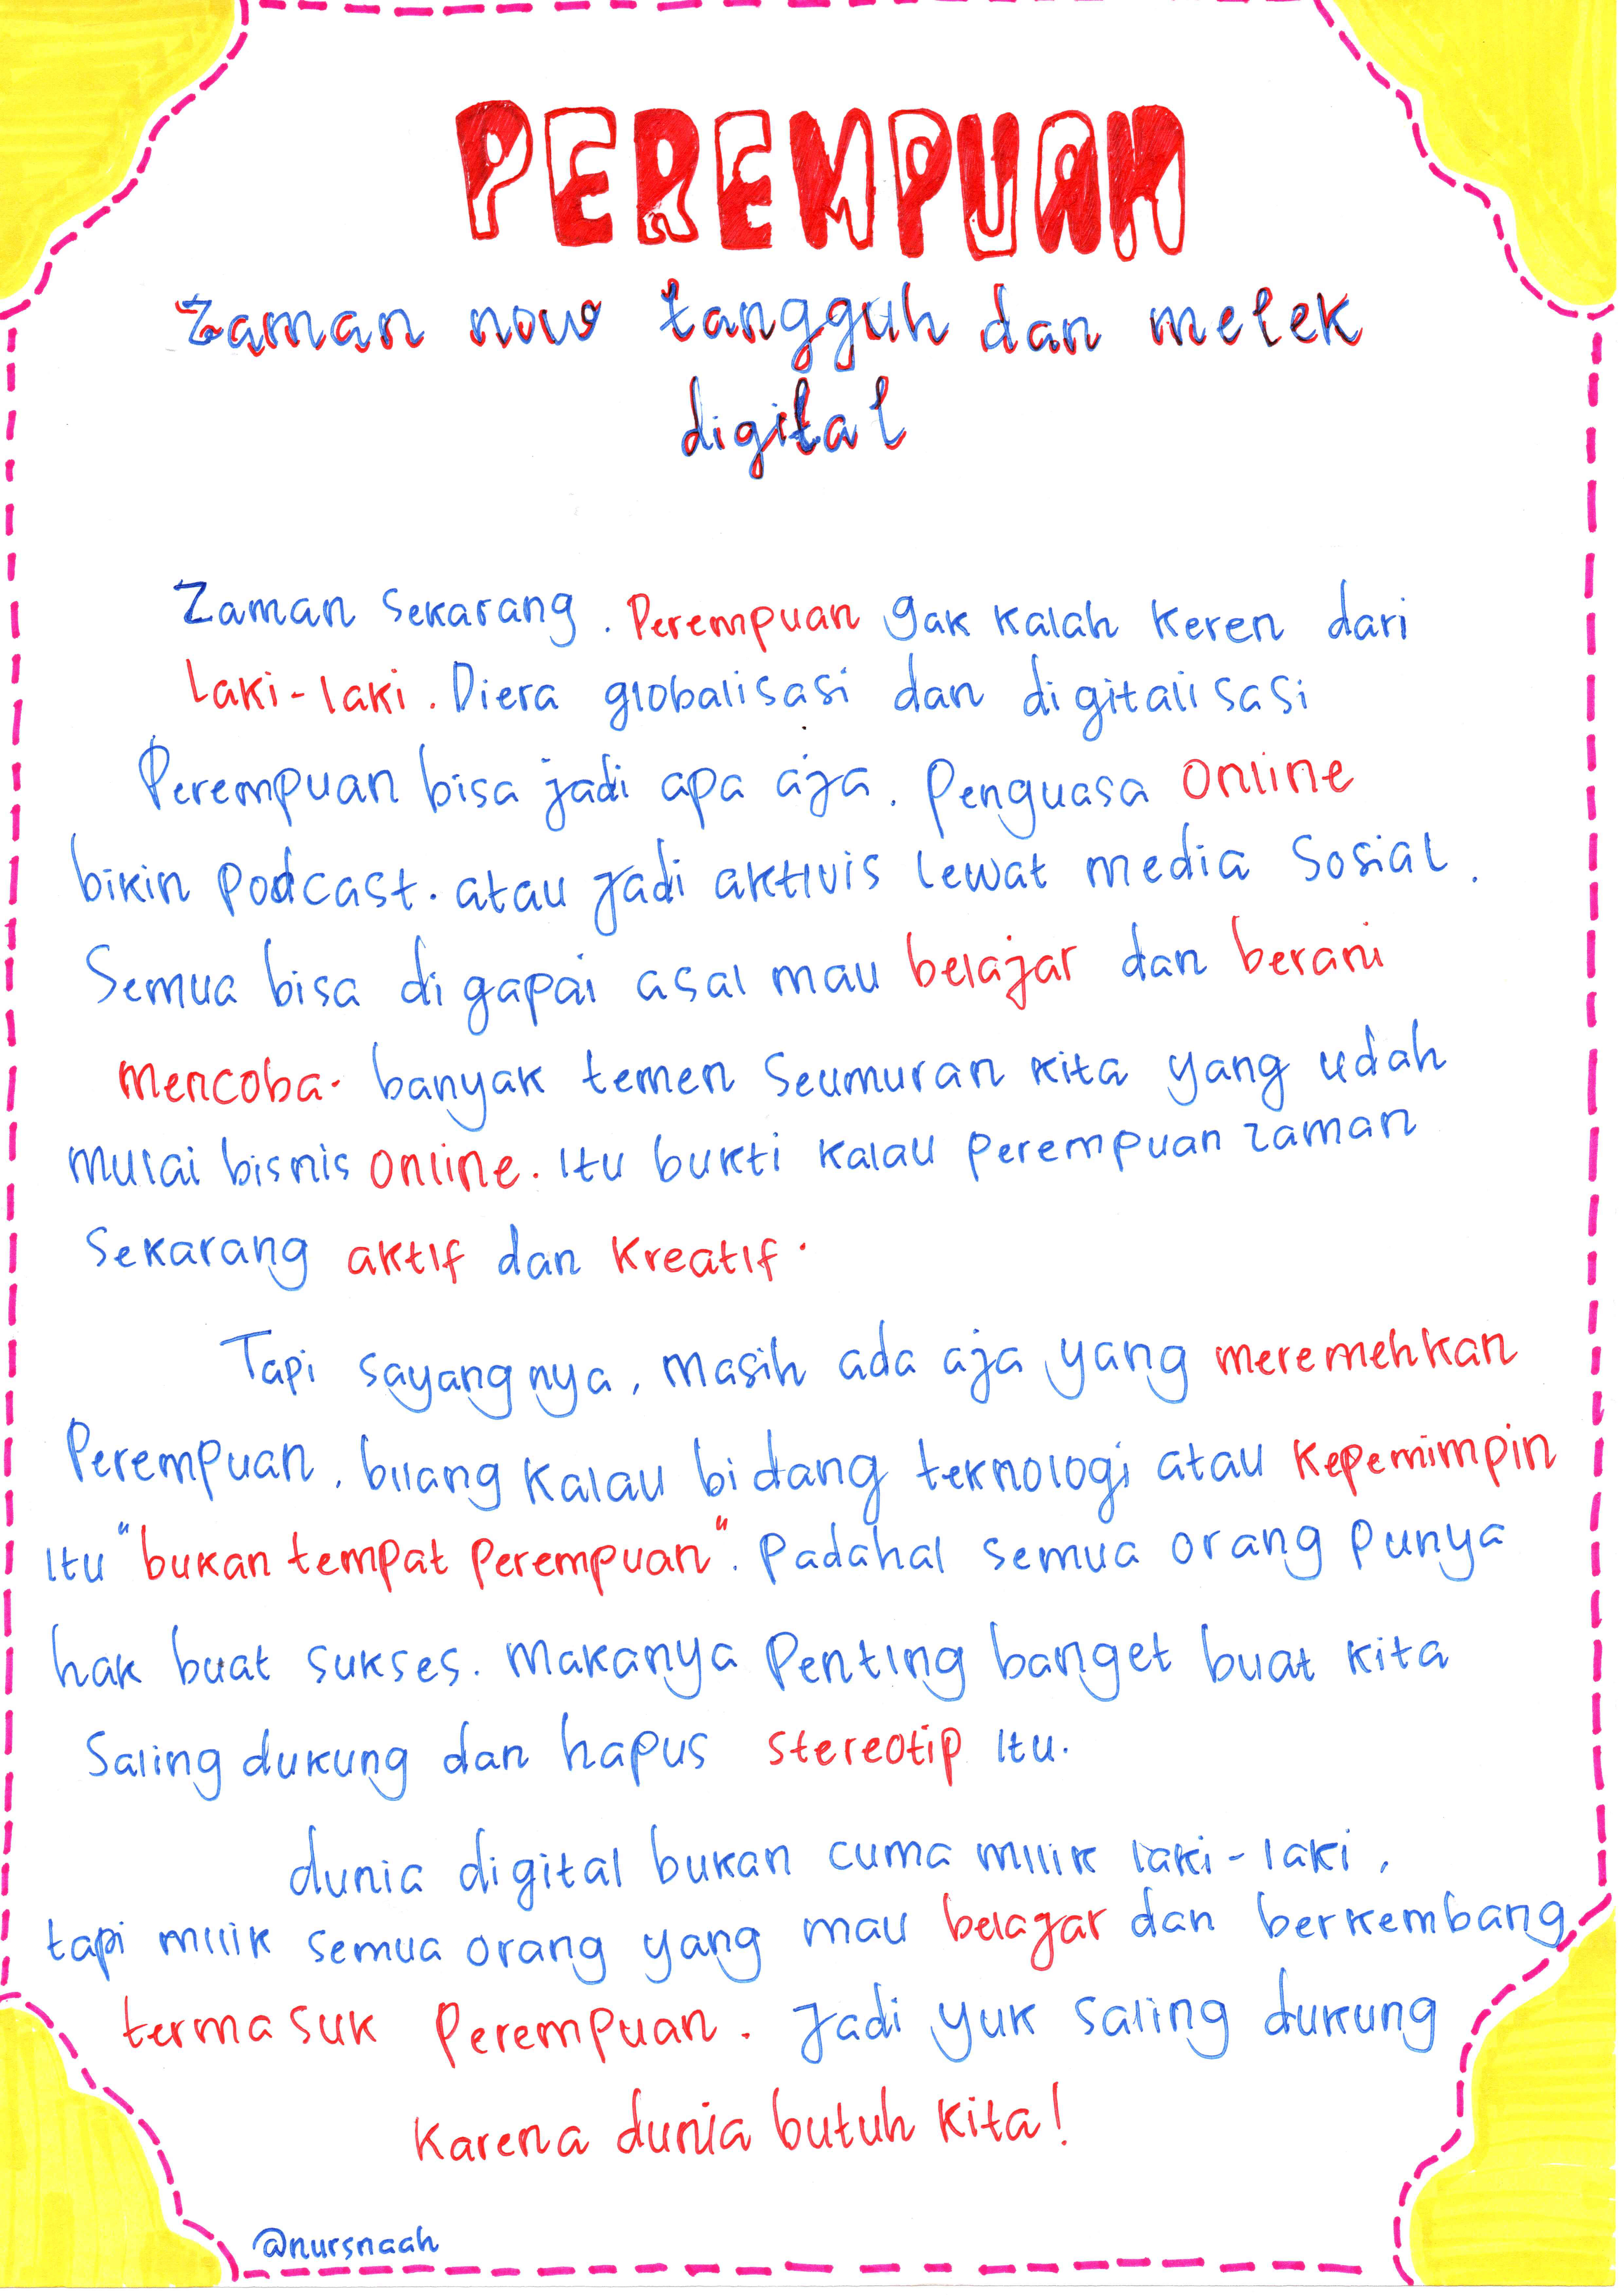 PEREMPUAN
Zaman now tangguh dan melek
digital
Zaman sekarang. Perempuan gak kalah keren dari
Laki-laki. Diera globalisasi dan digitalisasi
Perempuan bisa jadi apa aja. Penguasa Online
bikin Podcast. atau jadi aktivis lewat media Sosial.
Semua bisa di gapai asal mau belajar dan berani
Mencoba. banyak temen Seumuran kita yang udah
Mulai bisnis online. Itu bukti kalau perempuan zaman
Sekarang aktif dan Kreatif.
Tapi sayangnya, Masih ada aja yang meremehkan
Perempuan, bilang kalau bidang teknologi atau kepemimpin
Itu "bukan tempat Perempuan". Padahal semua orang Punya
hak buat sukses. Makanya Penting banget buat kita
Saling dukung dan hapus stereotip Itu.
dunia digital bukan cuma milik laki-laki,
tapi milik semua orang yang mau belajar dan berkembang
termasuk Perempuan. Jadi yuk saling dukung
Karena dunia butuh Kita!
@nursnaah